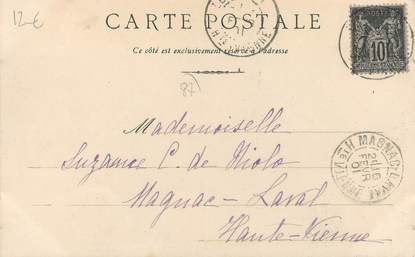 12-€
CARTE POSTALE
Ce côté est exclusivement réservé à l'adresse
10
87
Mademoiselle
Suzanne C. de Violo
Magnac-Laval
Haute-Vienne
MAGNAC-LAVAL
FEVR
01
HTE VIENNE